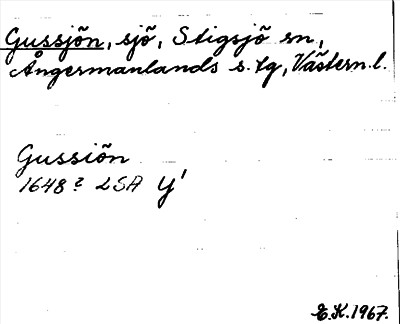 Gussjön, sjö, Stigsjö sn,
Ångermanlands s. tg, Västern. l.
Gussiön
1648? LSA Y'
E.K. 1967.